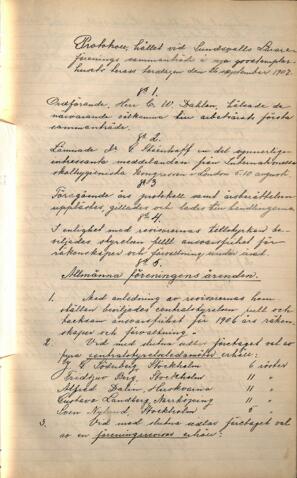 Protokoll, hållet vid Sundsvalls Lärare-
förenings sammanträde i nya goodtemplar-
husets lokal lördagen den september 1907.
§ 1.
Ordförande, Herr C. W. Dahlen, hälsade de
närvarande välkomna till arbetsårets första
sammanträde.
§ 2.
Lämnade Dr C. Steenhoff en del synnerligen
intressanta meddelanden från Internationella
skolhygieniska Kongressen i London 5-10 augusti.
§ 3
Föregående års protokoll samt årsberättelsen
upplästes, gillades och lades till handlingarna.
§ 4.
I enlighet med revisorernas tillstyrkan be-
viljades styrelsen full ansvarsfrihet för
räkenskaper och förvaltning under året.
§ 5.
Allmänna föreningens ärenden.
1. Med anledning av revisorernas hem-
ställan beviljades centralstyrelsen full och
ansvarsfrihet för 1906 års räken-
skaper och förvaltning.
2. Vid med slutna sedlar företaget val av
fyra centralstyrelseledamöter erhöll:
J. G. Söderberg, Stockholm 6 röster
Fridtjuv Berg, Stockholm 11 "
Alfred Dalin, Huskvarna 11 "
Gustava Landberg, Norrköping 11 "
Sven Nylund, Stockholm 5 "
3. Vid med slutna sedlar företaget val
av en föreningsrevisor erhöll: